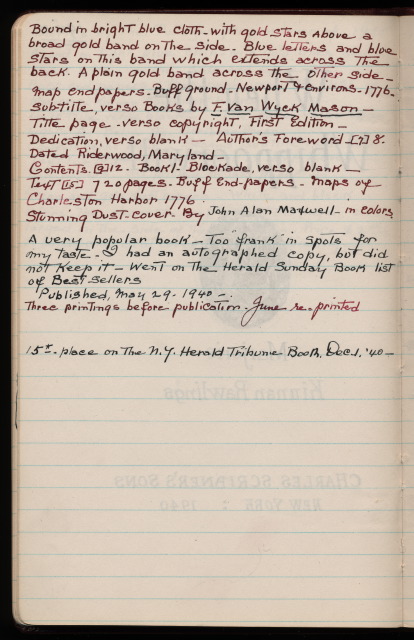 Bound in bright blue cloth - with gold stars above a
broad gold band on the side. Blue letters and blue
stars on this band which extends across the
back. A plain gold band across the other side -
map endpapers. Buff ground. Newport & Environs. 1776.
subtitle, verso Books by F. Van Wyck Mason -
Title page - verso copyright, First Edition -
Dedication, verso blank - Author's Foreword [7] 8.
Dated Riderwood, Maryland -
Contents [9] 12. Book I. Blockade, verso blank -
Text [15] 720 pages. Buff End-papers - maps of
Charleston Harbor 1776.
Stunning Dust-cover - By John Alan Maxwell - in colors.
A very popular book - Too frank in spots for
my taste - I had an autographed copy, but did
not keep it - Went on the Herald Sunday Book list
of Best-sellers
Published, May 29. 1940 -
Three printings before publication. June re-printed
15th. place on the N.Y. Herald Tribune Book, Dec. 1. '40 -
Kinnan Rawlings
CHARLES SCRIBNER'S SONS
NEW YORK : 1940